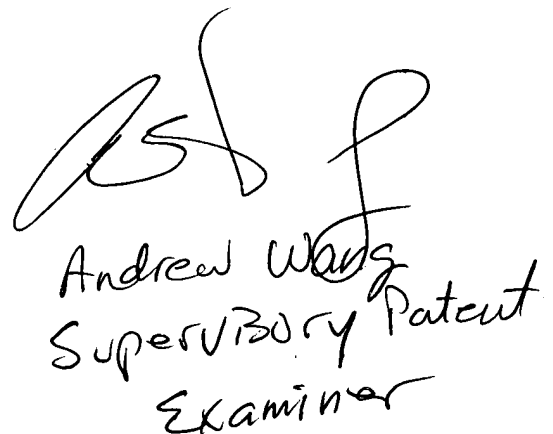 Andrew Wang
Supervisory Patent
Examiner